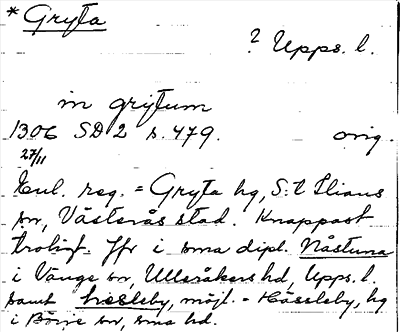 * Gryta
? Upps. l.
in grytum
1306 SD 2 s. 479. orig.
27/11
Enl. reg. = Gryta hg, S:t Ilians
sn, Västerås stad. Knappast
troligt. Jfr i sma dipl. Nåstuna
i Vänge sn, Ulleråkers hd, Upps. l.
samt hesleby, möjl. = Hässleby, hg
i Börje sn, sma hd.